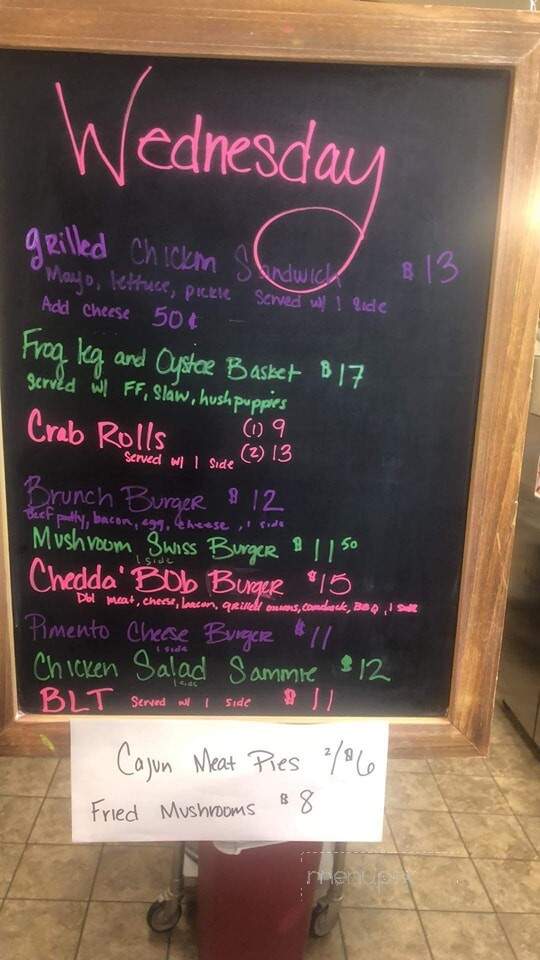 Wednesday
grilled Chicken Sandwich $13
Mayo, lettuce, pickle Served w/ 1 side
Add cheese 50¢
Frog leg and Oyster Basket $17
Served w/ FF, Slaw, hushpuppies
Crab Rolls (1) 9
Served w/ 1 side (2) 13
Brunch Burger $12
Beef patty, bacon, egg, cheese, 1 side
Mushroom Swiss Burger $11 50
1 side
Chedda' BOb Burger $15
Dbl meat, cheese, bacon, grilled onions, comeback, BBQ, 1 side
Pimento Cheese Burger $11
1 side
Chicken Salad Sammie $12
1 side
BLT Served w/ 1 side $11
Cajun Meat Pies 2/$6
Fried Mushrooms $8
menupix